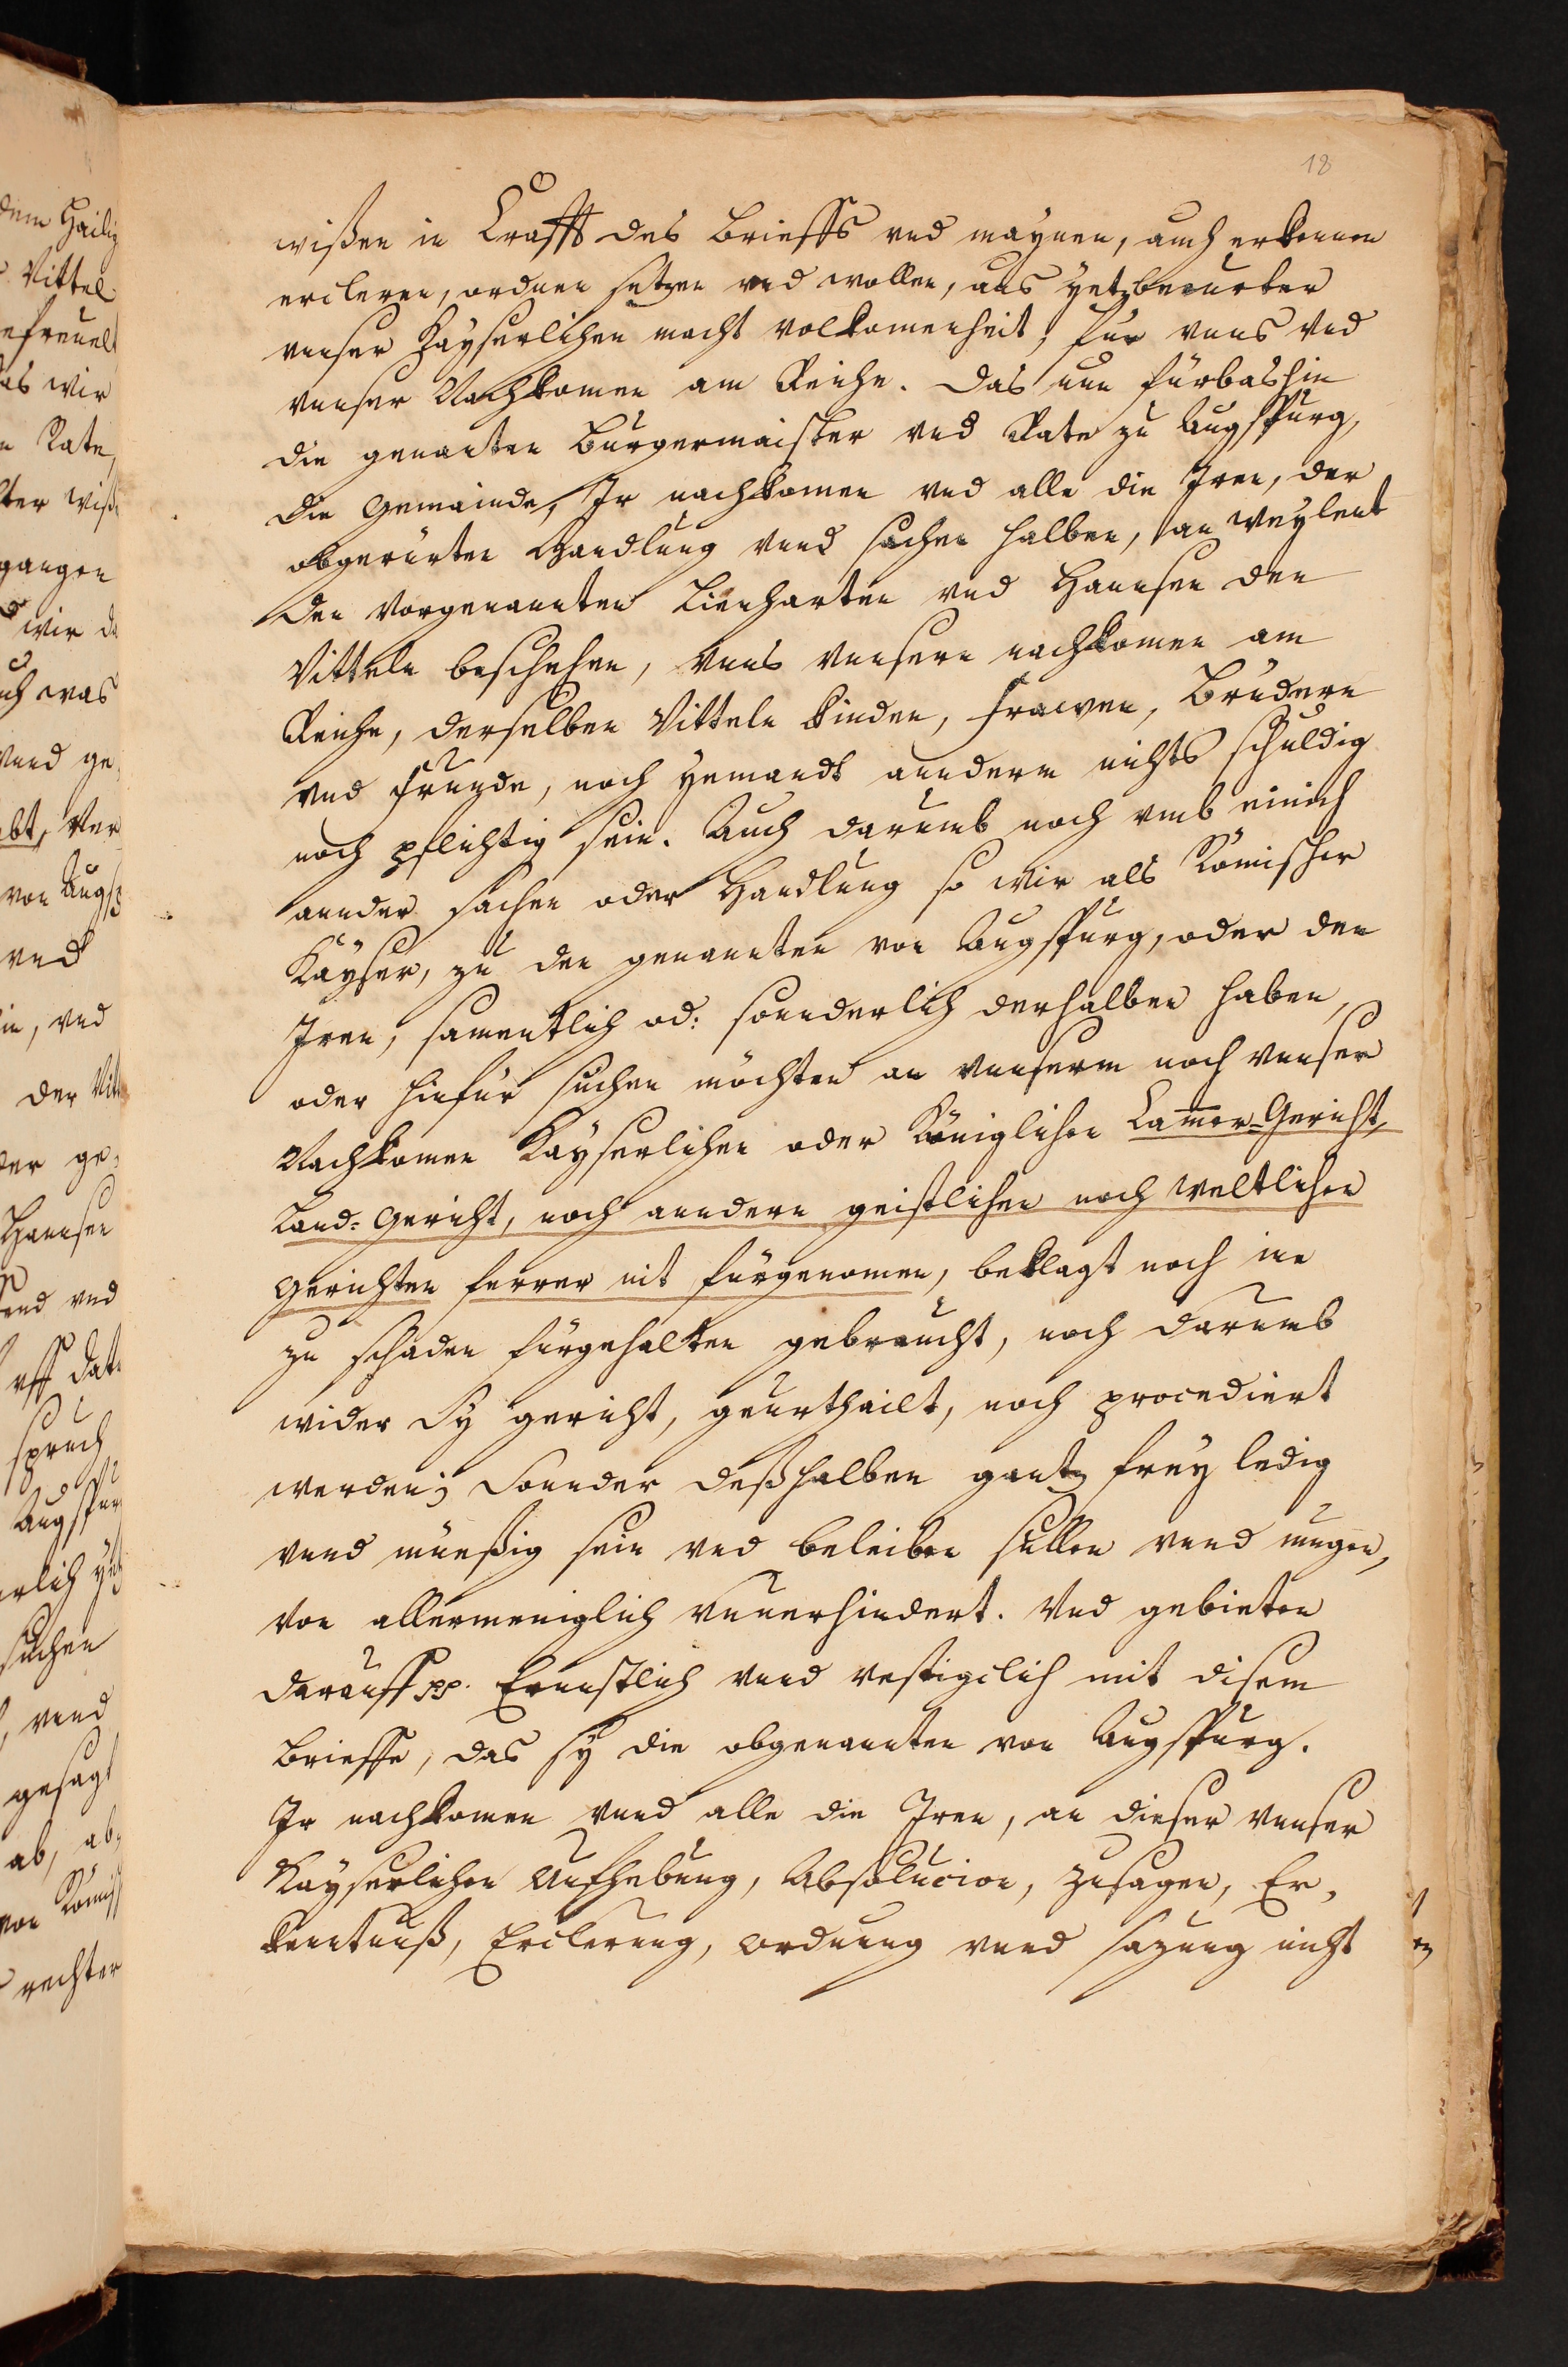 18
wißen in Crafft des Brieffs vnd maynen, auch erkennen
ercleren, ordnen setzen vnd wollen, aus yetzberurter
vnser Kayserlichen macht volkomenheit, für vnns vnd
vnnser Nachkomen am Reiche. Das nun fürbashin
die genanten Burgermaister vnd Rate zu Augspurg,
die Gemainde, Ir nachkomen vnd alle die Iren, der
obgerürten Handlung vnnd sachen halben, an weylent
den vorgenannten Lienharten vnd Hannsen den
Vitteln beschehen, vnns vnnsern nachkomen am
Reiche, derselben Vitteln kinden, frawen, Brüdern
vnd frunde, noch yemandt annderm nichts schuldig
noch pflichtig sein. Auch darumb noch vmb einich
annder sachen oder Handlung so wir als Römischer
Kayser, zu den genannten von Augspurg, oder den
Iren, samentlich od: sonnderlich derhalben haben,
oder hinfür suchen möchten an vnnserm noch vnnser
Nachkomen Kayserlichen oder Königlichen Camer-Gericht,
Land-Gericht, noch anndern geistlichen noch weltlichen
gerichten ferrer nit fürgenomen, beklagt noch inn
zu schaden fürgehalten gebraucht, noch darumb
wider Sy gericht, geurthailt, noch procediert
werden; Sonnder deßhalben gantz frey ledig
vnnd müeßig sein vnd beleiben sullen vnnd mugen,
von allermeniglich vnuerhindert. Vnd gebieten
darauff pp. Ernnstlich vnnd vestigclich mit disem
Brieffe, das sy die obgenannten von Augspurg.
Ir nachkomen vnnd alle die Iren, an dieser vnnser
Kayserlichen Aufhebung, Absolucion, zusagen, Er,
kenntnuß, Erclerung, ordnung vnnd sazung nicht